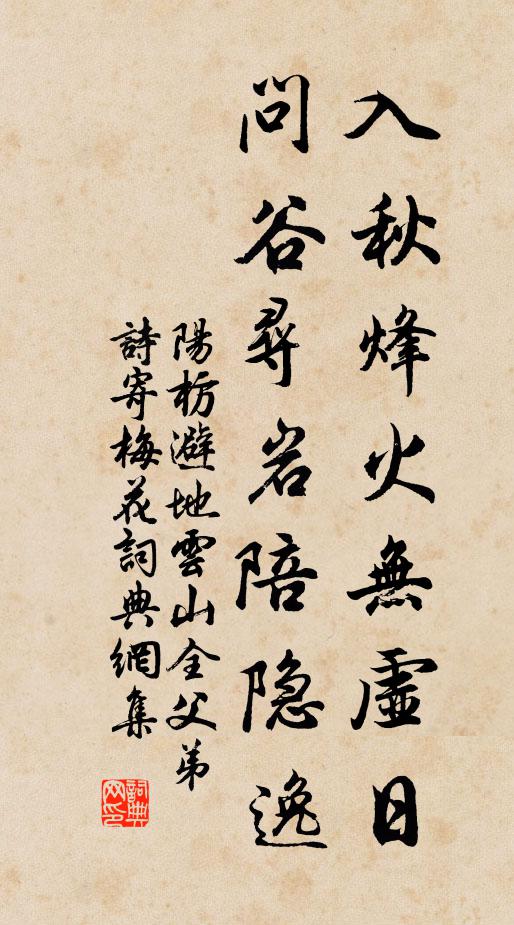 入秋烽火無虛日
問谷尋岩陪隐逸
陽枋避地雲山全父弟
詩寄梅花詞典網集
詞典
网印